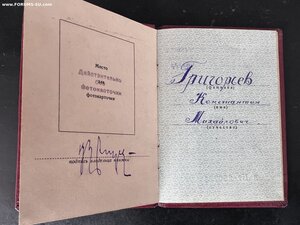 www.FORUMS-SU.com
Место
Действительно
без
фотокарточки
фотокарточки
подпись владельца книжки
Григорьев
(фамилия)
Константин
(имя)
Михайлович
(отчество)